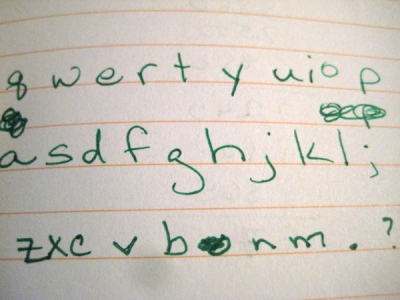 q w e r t y u i o p
a s d f g h j k l ;
z x c v b n m . ?